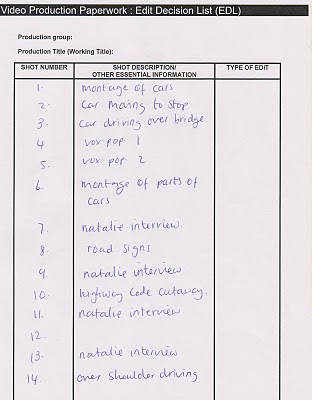 Video Production Paperwork : Edit Decision List (EDL)
Production group:
Production Title (Working Title):
SHOT NUMBER SHOT DESCRIPTION/ TYPE OF EDIT
OTHER ESSENTIAL INFORMATION
1. montage of cars
2. Car moving to stop
3. Car driving over bridge
4 vox-pop 1
5. vox-pop 2
6. montage of parts of
cars
7. natalie interview.
8. road signs
9. natalie interview
10. highway Code cutaway.
11. natalie interview
12.
13. natalie interview
14. over shoulder driving